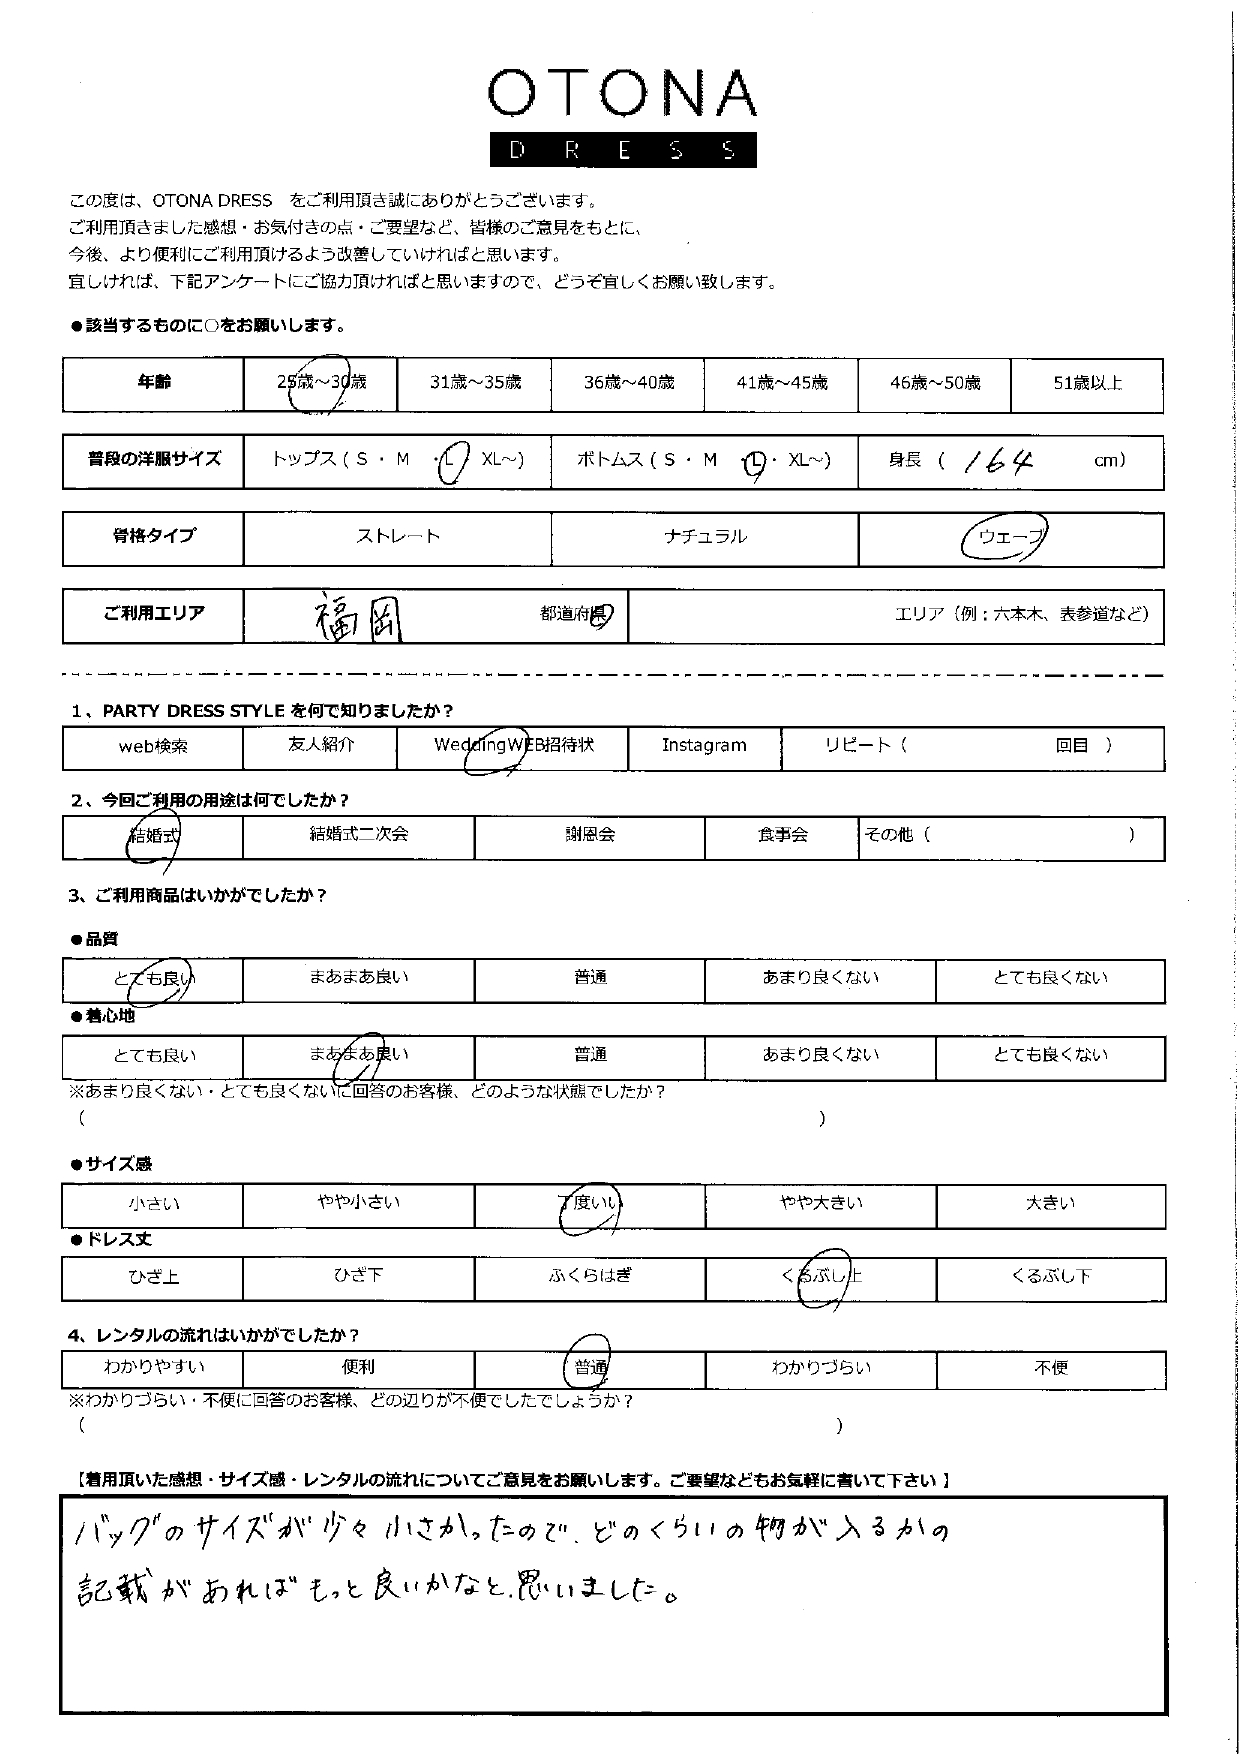 OTONA
DRESS
この度は、OTONA DRESS　をご利用頂き誠にありがとうございます。
ご利用頂きました感想・お気付きの点・ご要望など、皆様のご意見をもとに、
今後、より便利にご利用頂けるよう改善していければと思います。
宜しければ、下記アンケートにご協力頂ければと思いますので、どうぞ宜しくお願い致します。
●該当するものに○をお願いします。
年齢 25歳～30歳 31歳～35歳 36歳～40歳 41歳～45歳 46歳～50歳 51歳以上
普段の洋服サイズ トップス ( S ・ M ・L XL～) ボトムス ( S ・ M ・L・ XL～) 身長 ( 164 cm)
骨格タイプ ストレート ナチュラル ウェーブ
ご利用エリア 福岡 都道府県 エリア（例；六本木、表参道など）
1、PARTY DRESS STYLE を何で知りましたか？
web検索 友人紹介 WeddingWEB招待状 Instagram リピート（ 回目 ）
2、今回ご利用の用途は何でしたか？
結婚式 結婚式二次会 謝恩会 食事会 その他（ ）
3、ご利用商品はいかがでしたか？
●品質
とても良い まあまあ良い 普通 あまり良くない とても良くない
●着心地
とても良い まあまあ良い 普通 あまり良くない とても良くない
※あまり良くない・とても良くないに回答のお客様、どのような状態でしたか？
（ ）
●サイズ感
小さい やや小さい 丁度いい やや大きい 大きい
●ドレス丈
ひざ上 ひざ下 ふくらはぎ くるぶし上 くるぶし下
4、レンタルの流れはいかがでしたか？
わかりやすい 便利 普通 わかりづらい 不便
※わかりづらい・不便に回答のお客様、どの辺りが不便でしたでしょうか？
（ ）
【着用頂いた感想・サイズ感・レンタルの流れについてご意見をお願いします。ご要望などもお気軽に書いて下さい】
バッグのサイズが少々小さかったので、どのくらいの物が入るかの
記載があればもっと良いかなと、思いました。